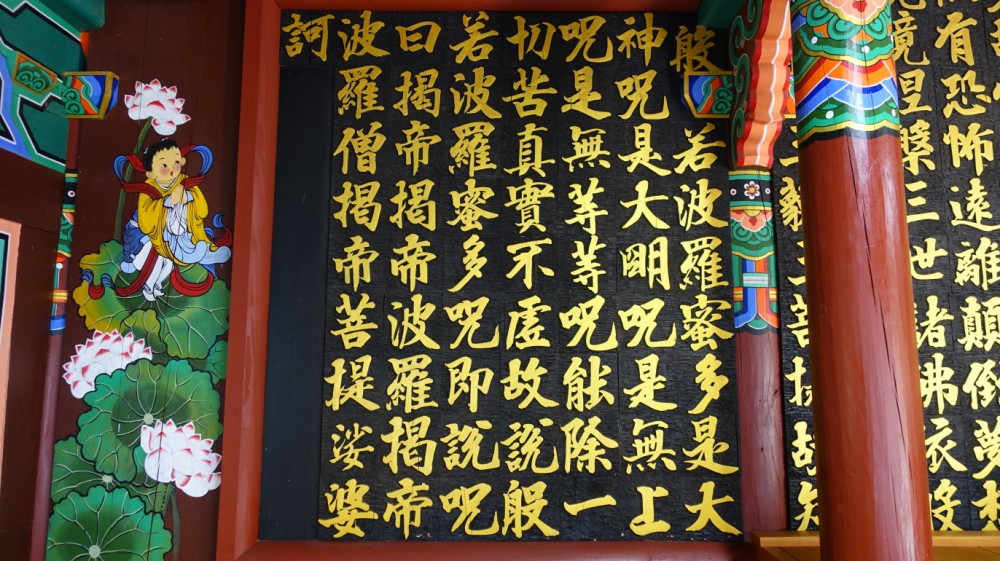 有恐怖遠離顛倒夢想
竟涅槃三世諸佛依般
三藐三菩提故知
般若波羅蜜多是大
神呪是大明呪是無上
呪是無等等呪能除一
切苦真實不虛故說般
若波羅蜜多呪即說呪
曰揭帝揭帝波羅揭帝
波羅僧揭帝菩提娑婆
訶